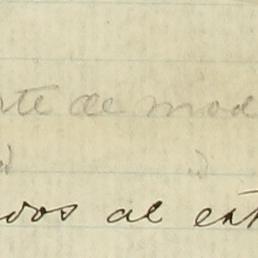 rte de mod
dos al ext